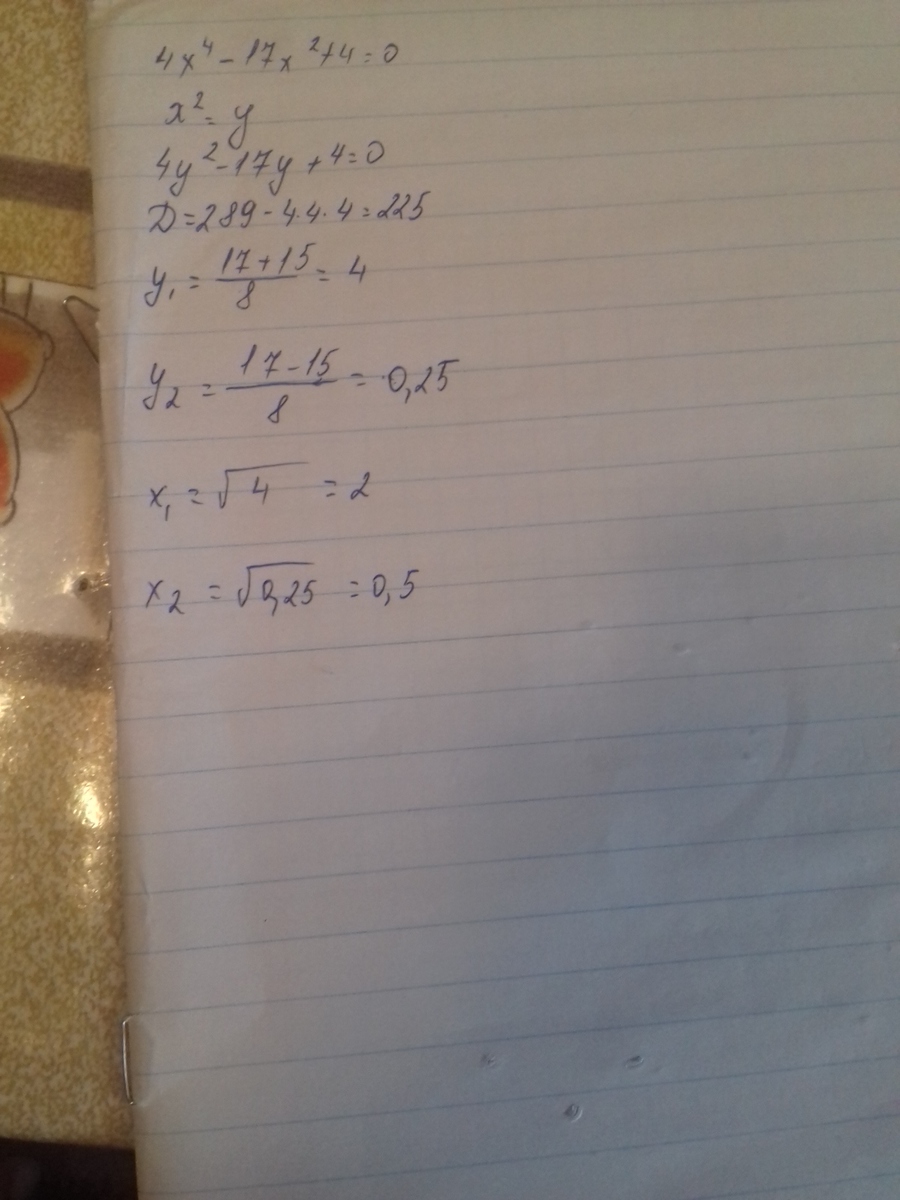 4x⁴ - 17x² + 4 = 0
x² = y
4y² - 17y + 4 = 0
D = 289 - 4·4·4 = 225
y₁ = (17 + 15)/8 = 4
y₂ = (17 - 15)/8 = 0,25
x₁ = √4 = 2
x₂ = √0,25 = 0,5